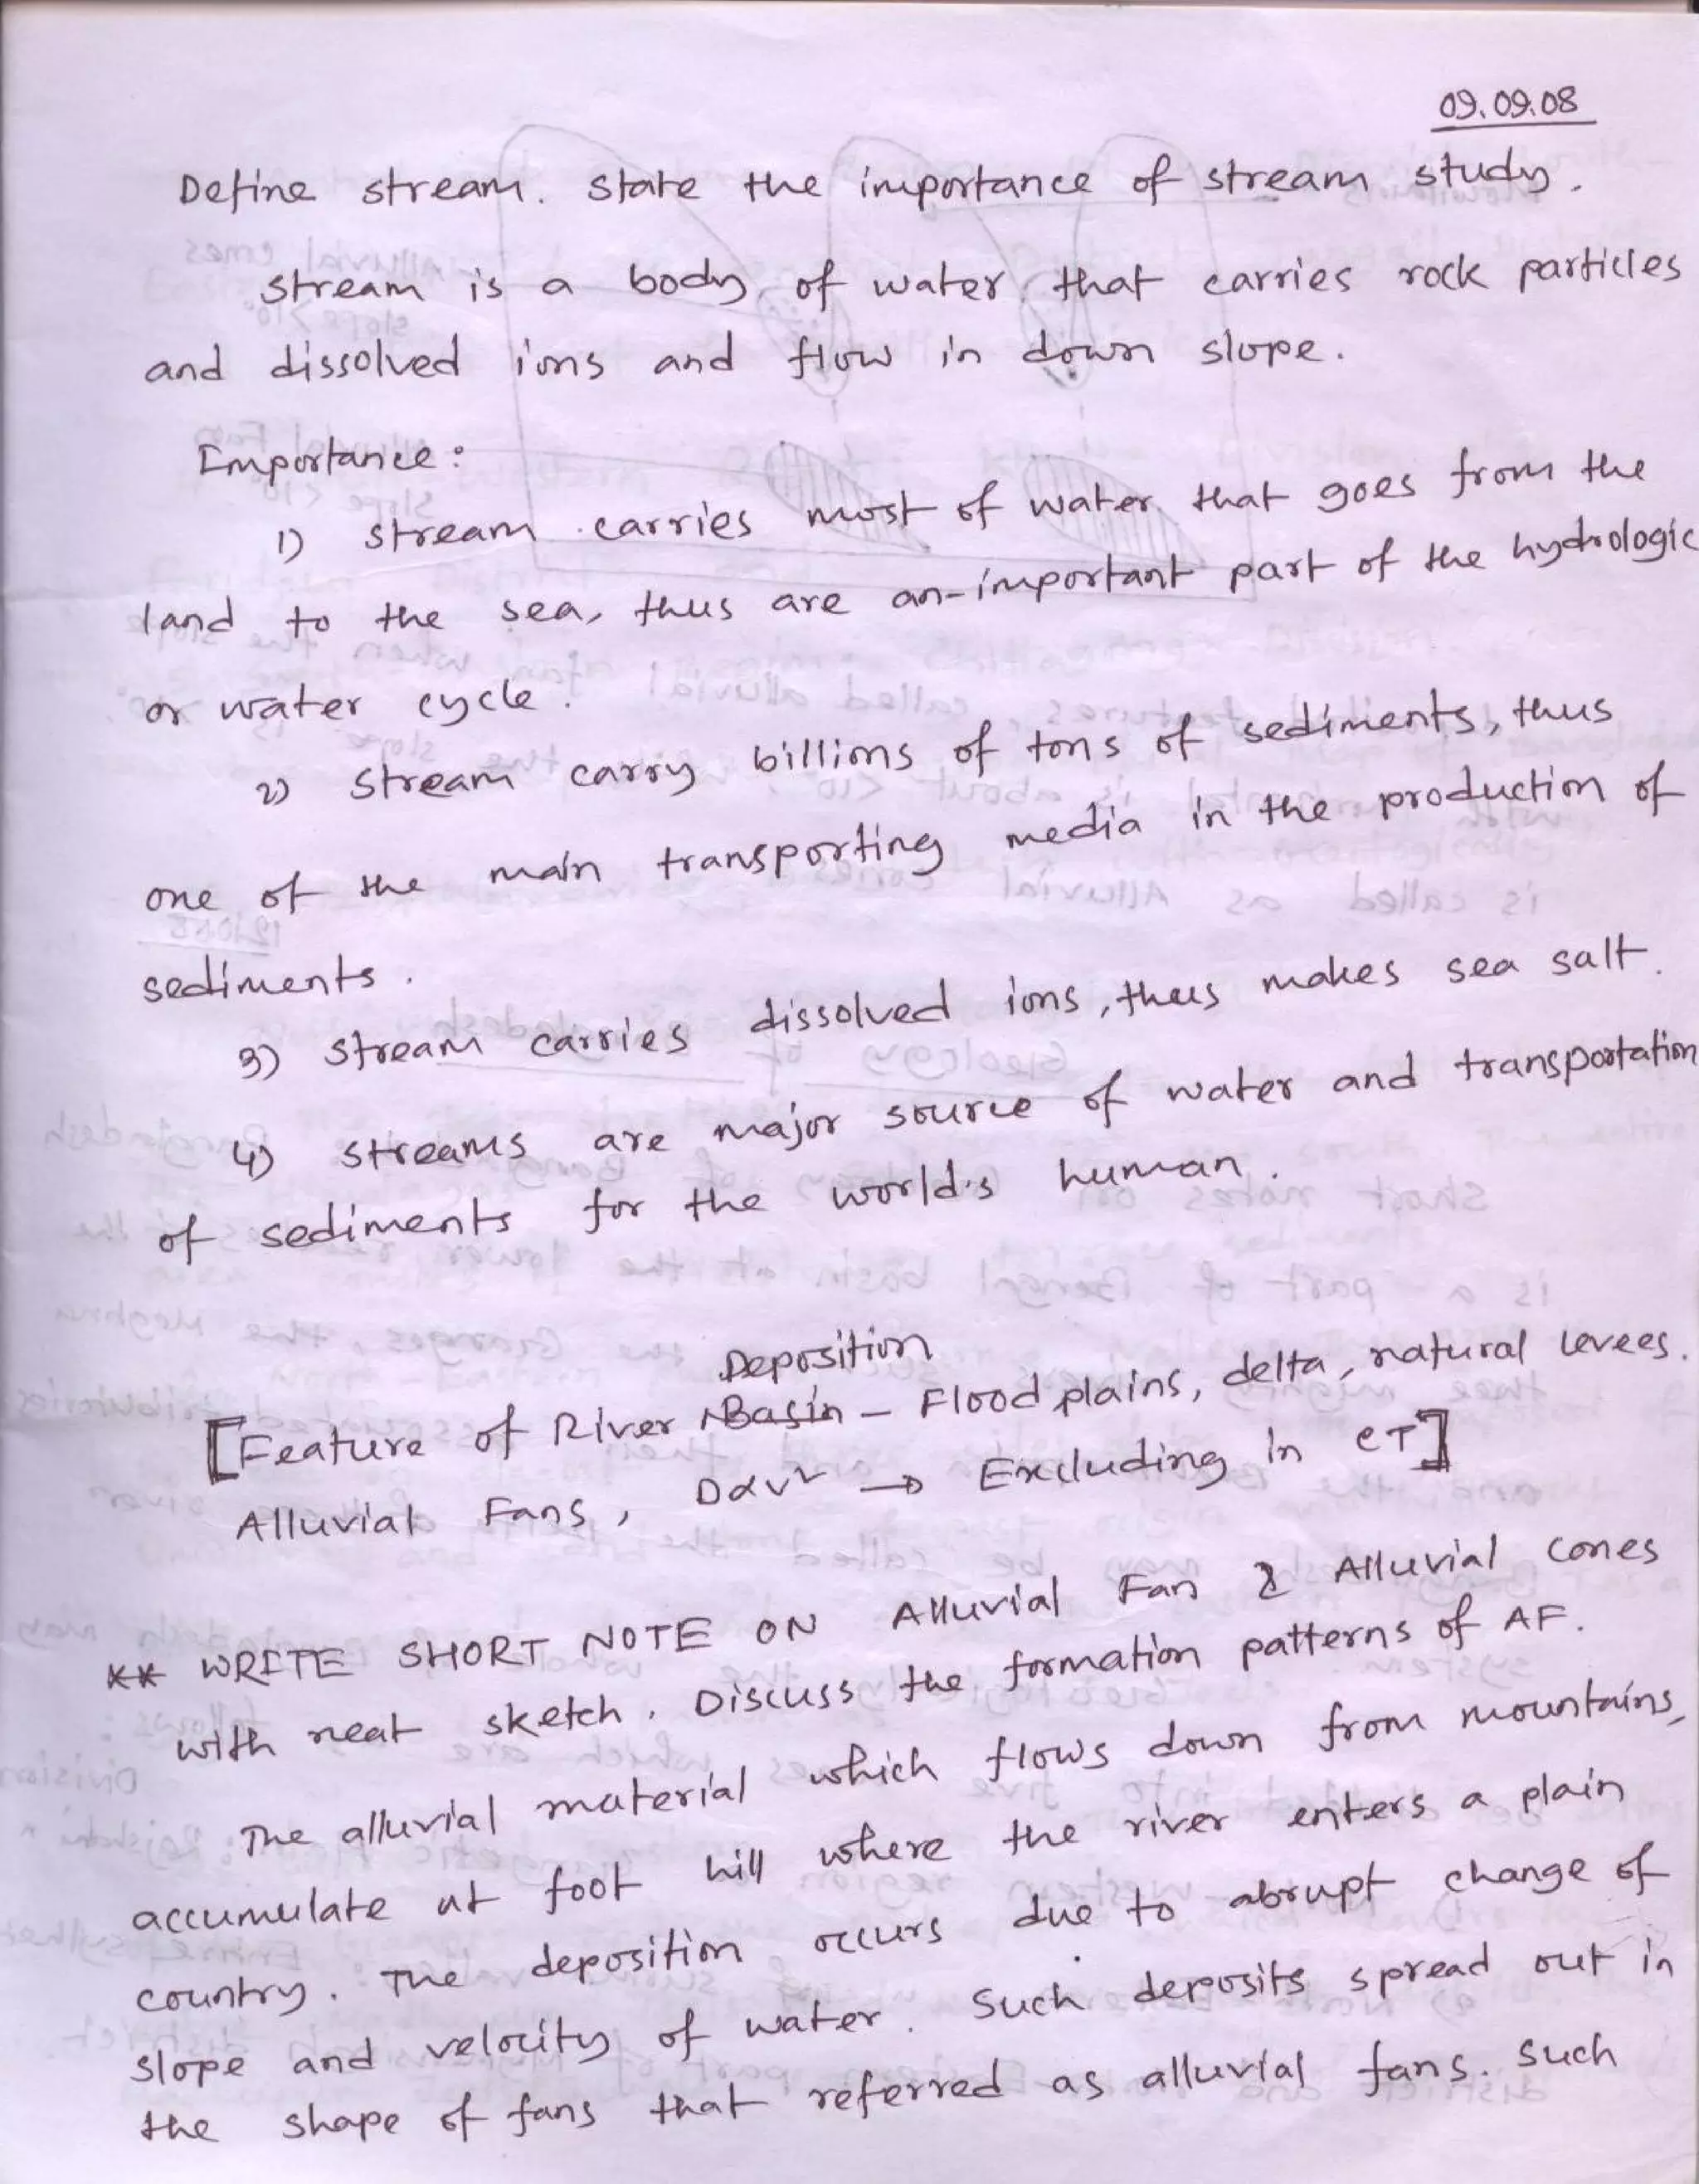 09.09.08
Define stream. State the importance of stream study.
Stream is a body of water that carries rock particles
and dissolved ions and flow in down slope.
Importance:
1) stream carries most of water that goes from the
land to the sea, thus are an-important part of the hydrologic
or water cycle.
2) Stream carry billions of tons of sediments, thus
one of the main transporting media in the production of
sediments.
3) Stream carries dissolved ions, thus makes sea salt.
4) streams are major source of water and transportation
of sediments for the world's human.
Deposition
[Feature of River Basin – Flood plains, delta, natural levees.
Alluvial Fans, D∝v² → Excluding in CT]
** WRITE SHORT NOTE ON Alluvial Fan & Alluvial Cones
with neat sketch. Discuss the formation patterns of AF.
The alluvial material which flows down from mountains,
accumulate at foot hill where the river enters a plain
country. The deposition occurs due to abrupt change of
slope and velocity of water. Such deposits spread out in
the shape of fans that referred as alluvial fans. Such